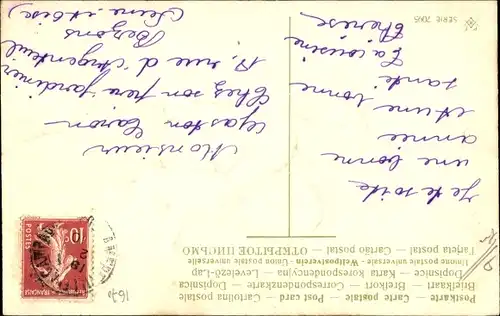 Postkarte — Carte postale — Post card — Cartolina postale
Briefkaart — Brefkort — Correspondenzkarte — Dopisnica
Dopisnice — Karta korespondencyjna — Levelező-Lap
Union postale universelle — Weltpostverein — Unione postale universale
Tarjeta postal — Cartão postal — ОТКРЫТОЕ ПИСЬМО
Je te souhaite
une bonne
année
et une bonne
santé
Ta cousine
Thérèse
Monsieur
Gaston Caron
Chez son père jardinier
rue d'Argenteuil
Bezons
(Seine et Oise)
SERIE 7065
10
POSTES
FRANÇAISE